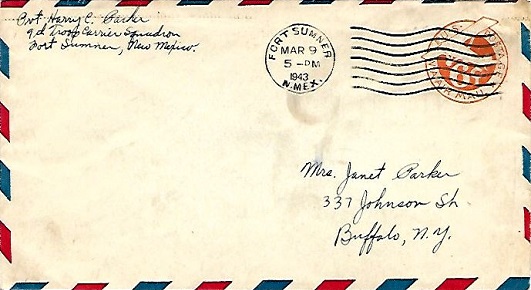 Pvt Harry C. Parker
9d Troop Carrier Squadron
Fort Sumner, New Mexico.
FORT SUMNER
MAR 9
5 - PM
1943
N.MEX.
AIR MAIL
Mrs. Janet Parker
337 Johnson St.
Buffalo, N.Y.